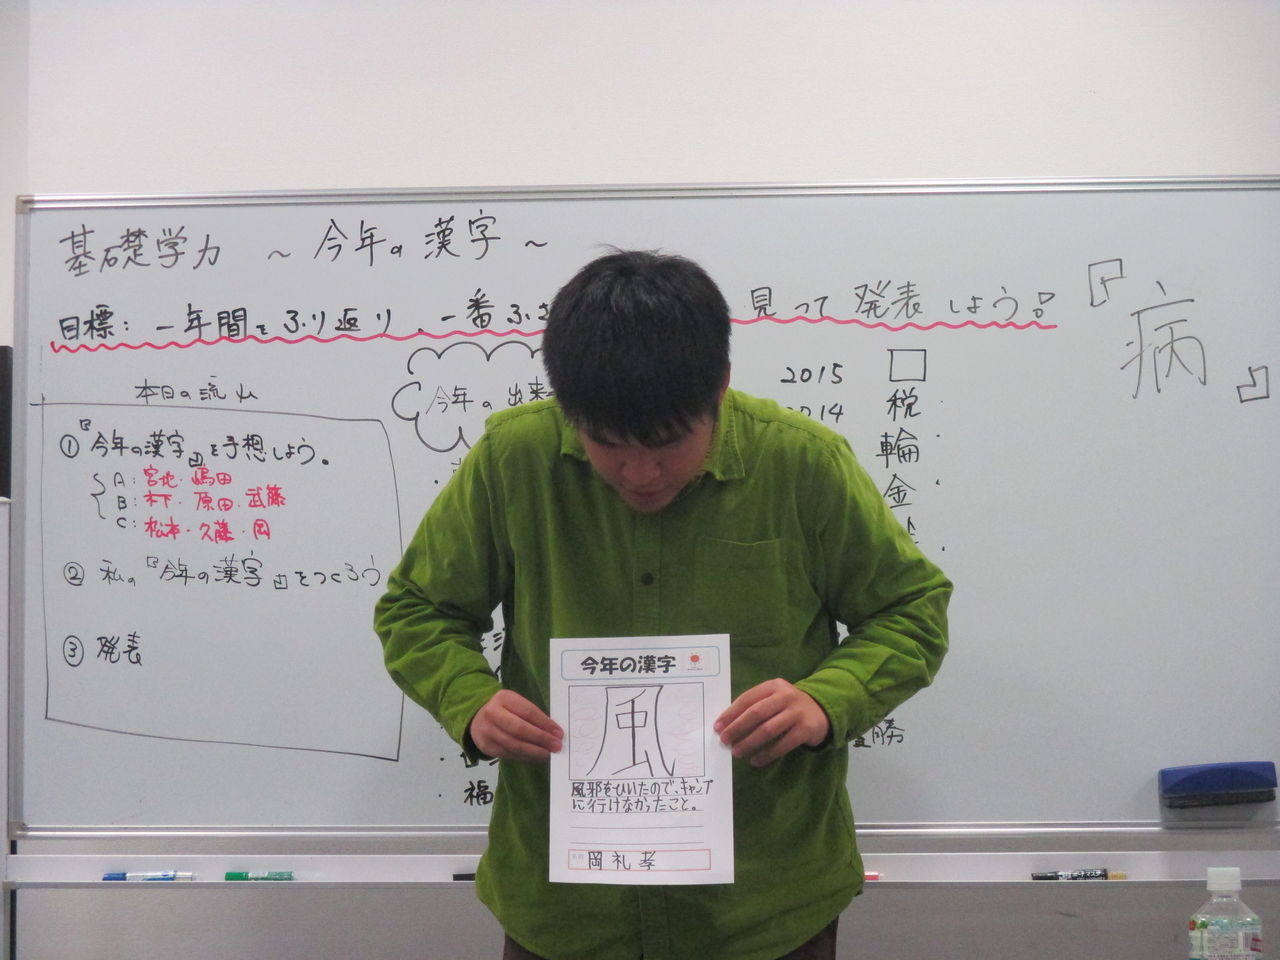 基礎学力 ～今年の漢字～
目標：一年間をふり返り、一番ふさ
見つて発表しよう。
『病』
本日の流れ
①『今年の漢字』を予想しよう。
A：宮地・嶋田
B：木下・原田・武藤
C：松本・久藤・岡
②私の『今年の漢字』をつくろう
③発表
今年の出来
2015 □
2014 税
輪
金
勝
福
今年の漢字
風
風邪をひいたので、キャンプ
に行けなかったこと。
岡礼孝